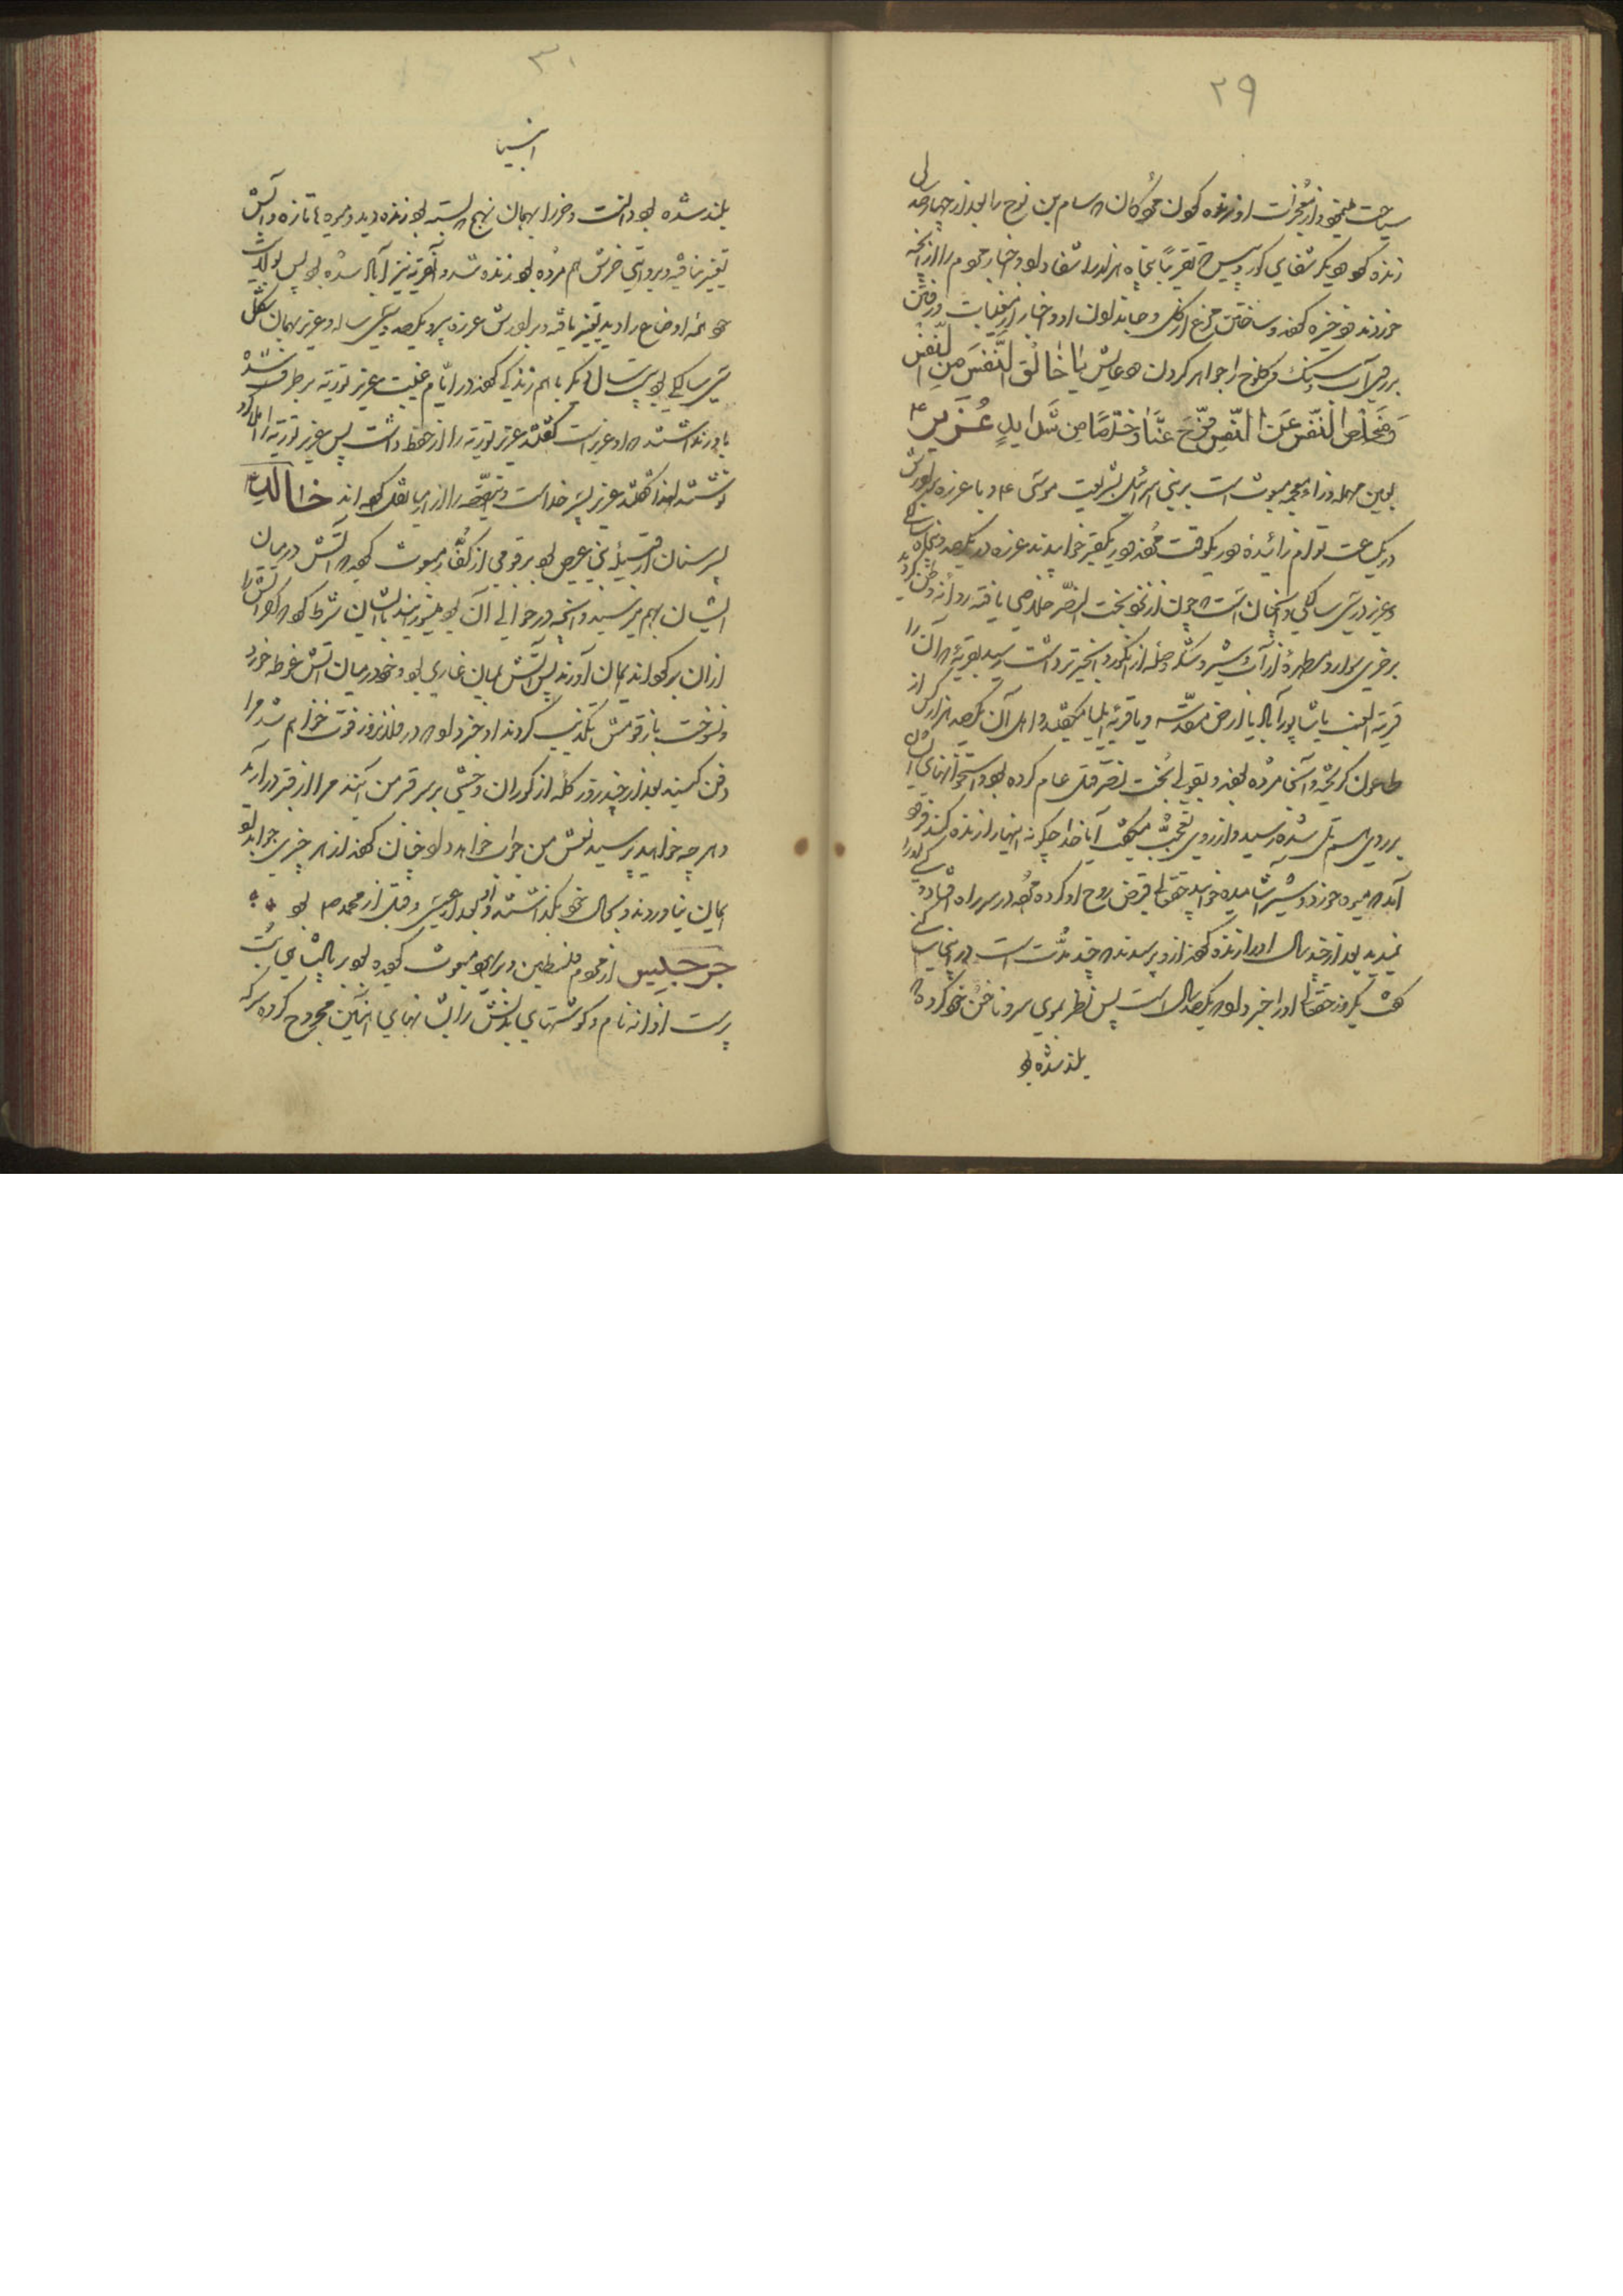 ۲۹
سیاحت مینمود از معجزات او زنده کردن سام بن نوح را بعد از چهار هزار سال
زنده کرد دیگر شفای کور و پیس تقریباً پنجاه هزار را شفا داد و اخبار مردم را از آنچه
خوردند و ذخیره کردند و ساختن مرغ از گل و جان دادن او و اخبار از مغیبات و رفتن
بر روی آب و سنگ و کلوخ را جواهر کردن دعایش یا خالق النفس من النفس
و مخلص النفس عن النفس فرج عنا و خلصنا من شدائد عزیر ع
بعین مهمله و زاء معجمه مبعوث است بر بنی اسرائیل بشریعت موسی ع و با عزره برادرش
در یک ساعت توام زائیده و در یکوقت و در یک قبر خوابیدند عزره در یکصد و پنجاه سالگی
و عزیر در سی سالگی و آنچنان است چون از بخت النصر خلاصی یافته روانه وطن گردید
بر خری سوار و مطهرهٔ از آب و شیر و سله از انگور و انجیر تر داشت رسید بقریهٔ که آن را
قریة العنب یا شاپور آباد یا ارض مقدسه و یا قریه ایلیا میگفتند و اهل آن یکصد هزار کس از
طاعون گریخته و آنجا مرده بودند و بقولی بخت نصر قتل عام کرده بود و استخوانهای ایشان
بر روی هم تل شده رسید و از روی تعجب میگفت آیا خدا چگونه اینها را زنده کند فرود
آمد میوه خورد و شیر آشامیده خوابید حقتعالی قبض روح او کرده در سر راه افتاده کسی او را
نمیدید بعد از صد سال او را زنده کرد از او پرسیدند چند مدت است در اینجایی
گفت یکروز حقتعالی او را خبر داد یکصد سال است پس نظر بموی سر و ناخن خود کرده
بلند شده بود
۳۰
انبیا
بلند شده بود دانست و خر را بهمان نهج بسته بود زنده دید و میوه ها تازه و آبش
تغییر نیافته و بروایتی خرش هم مرده بود زنده شد و آنقریه نیز آباد شده بود پس بولایت
خود آمد اوضاع را دید تغییر یافته و برادرش عزره پیر یکصد و سی ساله و عزیر بهمان شکل
سی سالگی بود بیست سال دیگر با هم زندگی کردند در ایام غیبت عزیر توریة بر طرف شده
باور نداشتند او عزیر است گفتند عزیر توریة را از حفظ داشت پس عزیر توریة را املا کرد
نوشتند لهذا گفتند عزیر پسر خداست و قصه را از ارمیا نقل کرده اند خالد
پسر سنان از قبیله بنی عبس بود بر قومی از کفار مبعوث گردید آتش در میان
ایشان بهم میرسید و آنچه در حوالی آن بود میسوزانید با ایشان شرط کرد که اگر آتش را
از آن بر گرداند ایمان آورند پس آتش بمیان غاری بود و خود در میان آتش غوطه خورد
و نسوخت باز قومش تکذیب کردند او خبر داد در فلان روز فوت خواهم شد مرا
دفن کنید بعد از چند روز گله از گوران وحشی بر سر قبر من آیند مرا از قبر در آرید
و هر چه خواهید پرسید نعش من جواب خواهد داد چنان کردند از هر چیزی جواب داد
ایمان نیاوردند و بحال خود بگذاشتند و او بعد از عیسی و قبل از محمد ص بود
جرجیس از مردم فلسطین و پیغمبر مبعوث گردید بود بر پادشاهی بت
پرست اوانه نام و گوشتهای بدنش را بشانهای آهنین مجروح کرده سرکه